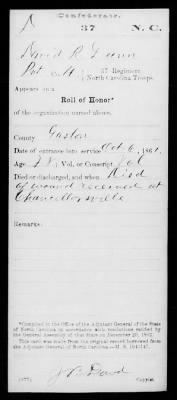 Confederate.
D 37 N. C.
David R. Dunn
Pvt, Co H, 37 Regiment
North Carolina Troops.
Appears on a
Roll of Honor*
of the organization named above.
County Gaston
Date of entrance into service Oct 6, 1861.
Age 28; Vol. or Conscript Vol
Died or discharged, and when Died
of wound received at
Chancellorsville
Remarks:
*Compiled in the Office of the Adjutant General of the State
of North Carolina in accordance with resolutions ratified by the
General Assembly of that State on December 20, 1862.
This card was made from the original record borrowed from
the Adjutant General of North Carolina
Copyist.